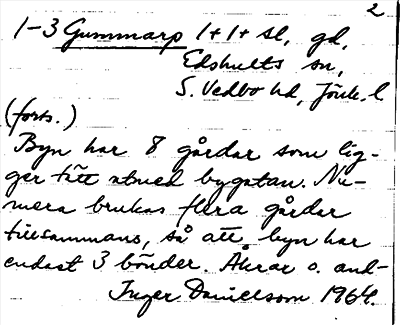 2
1-3 Gummarp 1+1+ sl, gd,
Edshults sn,
S. Vedbo hd, Jönk. l
(forts.)
Byn har 8 gårdar som lig-
ger tätt utmed bygatan. Nu-
mera brukas flera gårdar
tillsammans, så att byn har
endast 3 bönder. Åkrar o. and-
Inger Danielsson 1964.